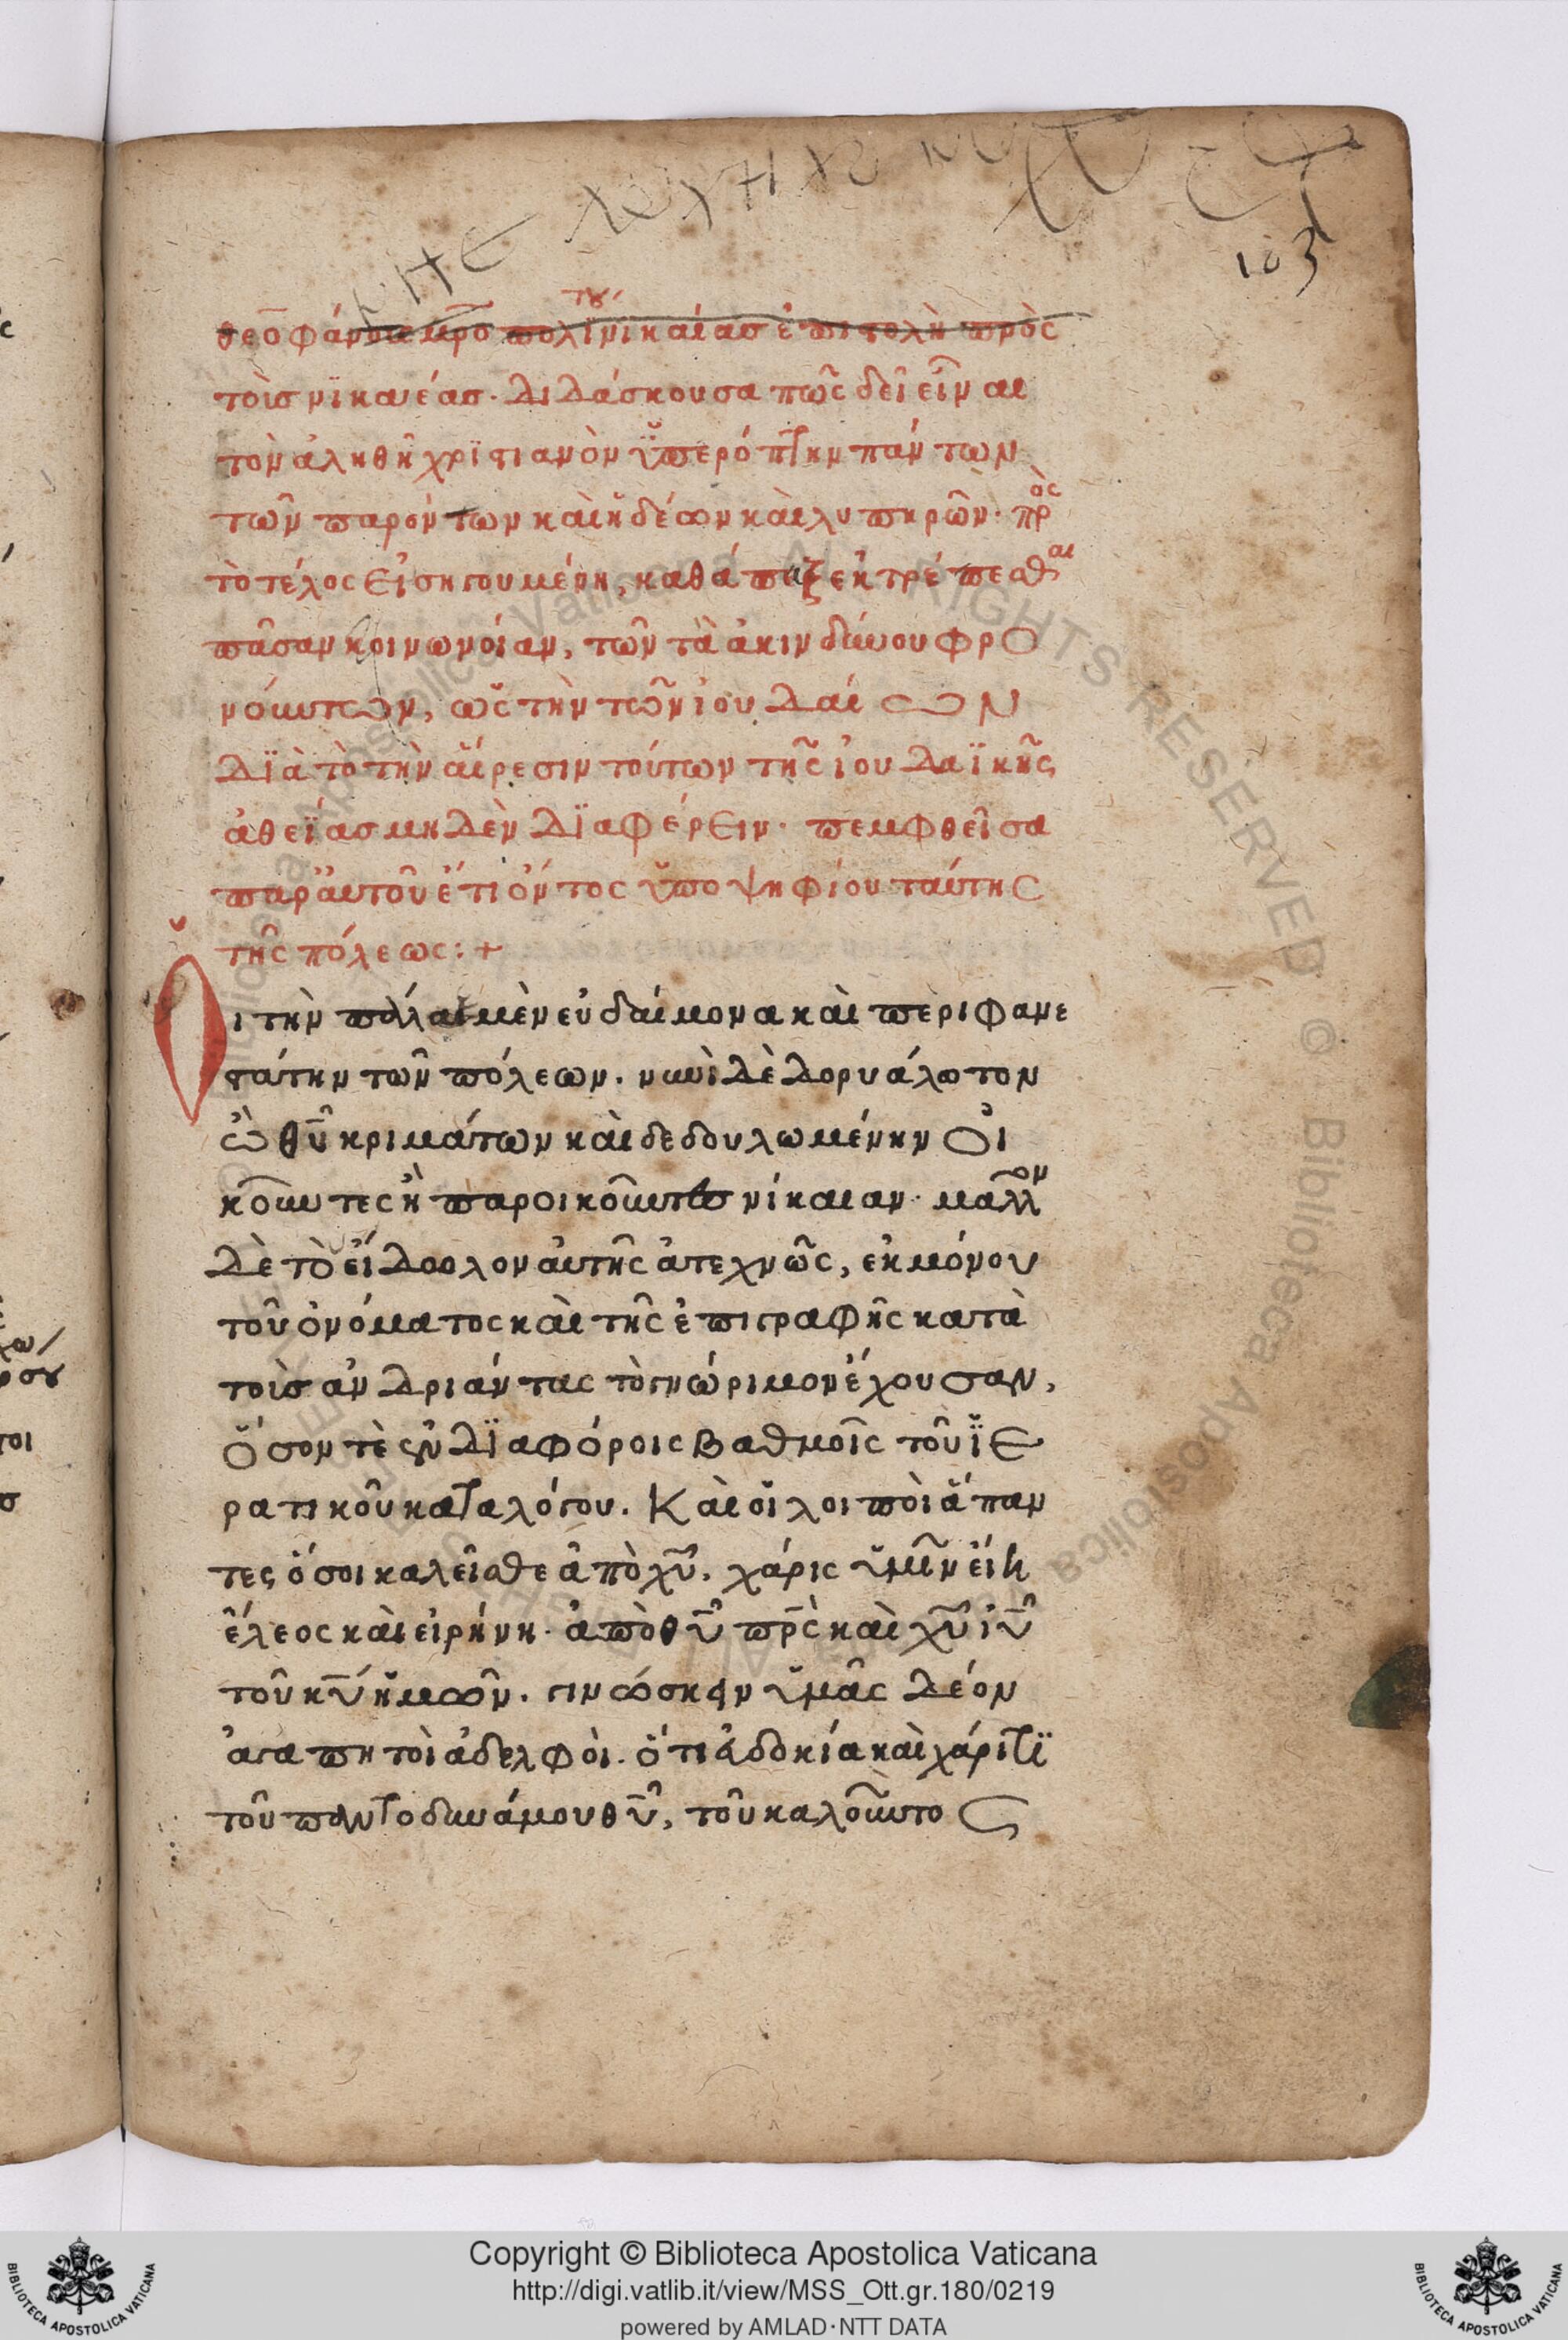 103
θεοφάνους μρο πολίτου νικαίας ἐπιστολὴ πρὸς
τοὺς νϊκαιέας. διδάσκουσα πῶς δεῖ εἶναι
τὸν ἀληθῆ χρϊστιανὸν ὑπερόπτην πάντων
τῶν παρόντων καὶ ἡδέων καὶ λυπηρῶν. πρὸς
τὸ τέλος εἰσηγουμένη, καθάπαξ ἐκτρέπεσθαι
πᾶσαν κοινωνοίαν, τῶν τὰ ἀκινδύνου φρο
νούντων, ὡς τὴν τῶν ἰουδαίων
δϊὰ τὸ τὴν αἵρεσιν τούτων τῆς ἰουδαϊκῆς
ἀθεϊάς μηδὲν δϊαφέρειν. πεμφθεῖσα
παρ' αὐτοῦ ἔτι ὄντος ὑποψηφίου ταύτης
τῆς πόλεως:+
Οἱ τὴν πάλαι μὲν εὐδαίμονα καὶ περιφανε
στάτην τῶν πόλεων. νυνὶ δὲ δορυάλωτον
ὢ θυ κριμάτων καὶ δεδουλωμένην οἰ
κοῦντες ἢ παροικοῦντες νίκαιαν. μᾶλλον
δὲ τὸ εἴδωλον αὐτῆς ἀτεχνῶς, ἐκ μόνου
τοῦ ὀνόματος καὶ τῆς ἐπιγραφῆς κατὰ
τοὺς ἀνδριάντας τὸ γνώριμον ἔχουσαν,
ὅσον τὲ ἐν δϊαφόροις βαθμοῖς τοῦ ϊε
ρατικοῦ καταλόγου. Καὶ οἱ λοιποὶ ἅπαν
τες ὅσοι καλεῖσθε ἀπὸ χυ. χάρις ὑμῖν εἴη
ἔλεος καὶ εἰρήνη. ἀπὸ θυ πρς καὶ χυ ιυ
τοῦ κυ ἡμῶν. γινώσκειν ὑμᾶς δέον
ἀγαπητοὶ ἀδελφοὶ. ὅτι εὐδοκία καὶ χάριτϊ
τοῦ παντοδυνάμου θυ, τοῦ καλοῦντος
Copyright © Biblioteca Apostolica Vaticana
http://digi.vatlib.it/view/MSS_Ott.gr.180/0219
powered by AMLAD·NTT DATA